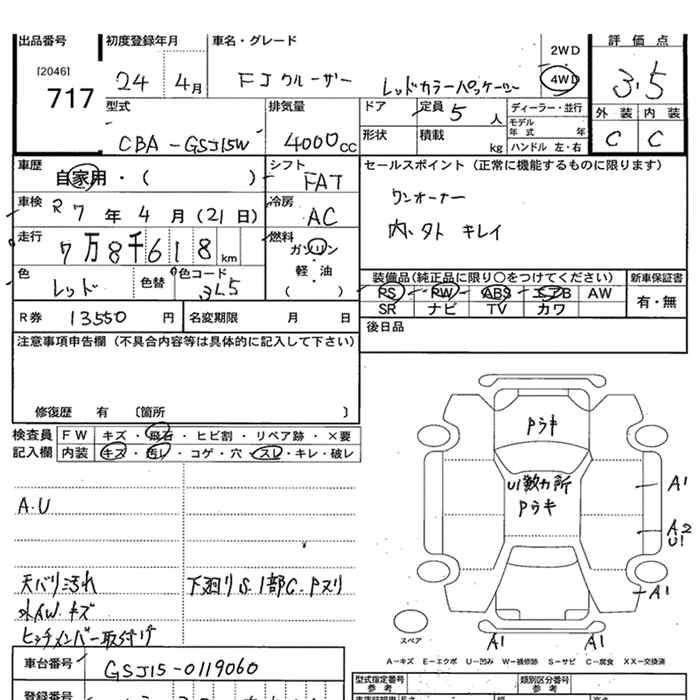 出品番号 初度登録年月 車名・グレード 評価点
[2046]
717
24 4月 FJクルーザー レッドカラーパッケージ 2WD 4WD 3.5
外装 内装
C C
型式 排気量 ドア 定員 5人 ディーラー・並行
モデル年式 年
CBA-GSJ15W 4000cc 形状 積載 kg ハンドル 左・右
車歴 シフト セールスポイント(正常に機能するものに限ります)
自家用・( ) FAT
ワンオーナー
車検 R7年4月(21日) 冷房 AC
内、外 キレイ
走行 7万8千618km 燃料 ガソリン
軽・油
( )
色 レッド 色替 色コード 3L5
装備品(純正品に限り○をつけてください) 新車保証書
PS PW ABS エアB AW 有・無
SR ナビ TV カワ
R券 13550円 名変期限 月 日 後日品
注意事項申告欄(不具合内容等は具体的に記入して下さい)
修復歴 有 〔箇所 〕
検査員 FW キズ・飛石・ヒビ割・リペア跡・×要
記入欄 内装 キズ・汚レ・コゲ・穴・スレ・キレ・破レ
Pラキ
U1数カ所
Pラキ
A1
A2
U1
A1
A.U
天バリ汚れ 下廻りS.1部C.Pヌリ
外AW.キズ
ヒッチメンバー取付け
スペア A1 A1
A-キズ E-エクボ U-凹み W-補修跡 S-サビ C-腐食 XX-交換済
車台番号 GSJ15-0119060
型式指定番号 類別区分番号
参考 参考
登録番号